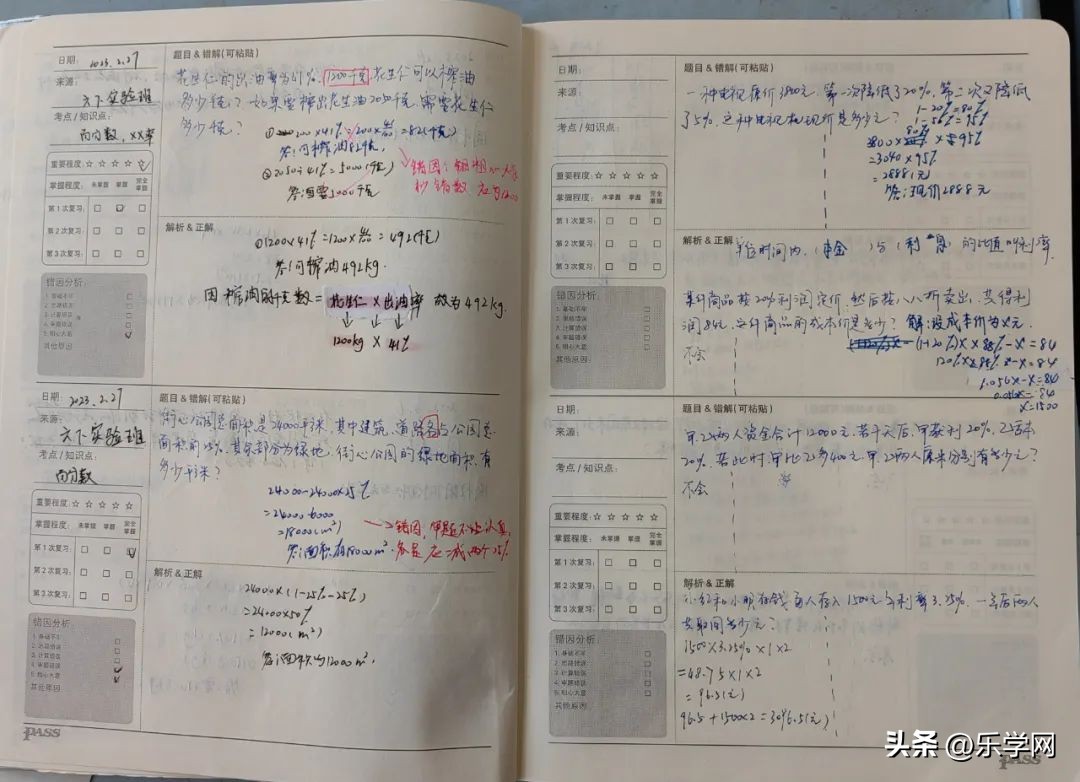 日期: 2023.2.27
来源:
六下实验班
考点 / 知识点:
百分数, XX率
重要程度: ☆ ☆ ☆ ☆ ☆
掌握程度: 未掌握 掌握 完全掌握
第1次复习: □ □ □
第2次复习: □ □ □
第3次复习: □ □ □
错因分析:
1. 基础不牢
2. 思路错误
3. 计算错误
4. 审题错误
5. 粗心大意
其他原因:
题目 & 错解(可粘贴)
花生仁的出油率为41%, 1200千克花生仁可以榨油
多少千克? 如果要榨出花生油2050千克, 需要花生仁
多少千克?
=82(千克)
答:可榨油82千克,
②2050÷41%=5000(千克)
答:需要5000千克
错因: 粗心
抄错数 应为1200
解析 & 正解
①1200×41%=1200× =492(千克)
答:可榨油492kg.
因榨油的千克数=花生仁×出油率 故为492kg.
1200kg × 41%
日期: 2023.2.27
来源:
六下实验班
考点 / 知识点:
百分数
重要程度: ☆ ☆ ☆ ☆ ☆
掌握程度: 未掌握 掌握 完全掌握
第1次复习: □ □ □
第2次复习: □ □ □
第3次复习: □ □ □
错因分析:
1. 基础不牢
2. 思路错误
3. 计算错误
4. 审题错误
5. 粗心大意
其他原因:
PASS
题目 & 错解(可粘贴)
街心公园总面积是24000平米, 其中建筑、道路各占公园总
面积的25%, 其余部分为绿地, 街心公园的绿地面积有
多少平米?
24000-24000×25%
=24000-6000
=18000(m²)
答:面积有18000m².
错因, 审题不够认真,
应减两个25%
解析 & 正解
24000×(1-25%-25%)
=24000×50%
=12000(m²)
答:面积为12000m².
日期:
来源:
考点 / 知识点:
重要程度: ☆ ☆ ☆ ☆ ☆
掌握程度: 未掌握 掌握 完全掌握
第1次复习: □ □ □
第2次复习: □ □ □
第3次复习: □ □ □
错因分析:
1. 基础不牢
2. 思路错误
3. 计算错误
4. 审题错误
5. 粗心大意
其他原因:
题目 & 错解(可粘贴)
一种电视原价3800元, 第一次降低了20%, 第二次又降低
了5%, 这种电视机现价是多少元?
1-20%=80%
1-5%=95%
=3040×95%
=2888(元)
答:现价2888元
解析 & 正解
单位时间内, (本金)与(利息)的比值叫利率.
某件商品按20%利润定价, 然后按八八折卖出, 共得利
润84元, 这件商品的成本价是多少? 解:设成本价为x元.
不会
(1+20%)x×88%-x=84
120%x×88%-x=84
1.056x-x=84
0.056x=84
x=1500
日期:
来源:
考点 / 知识点:
重要程度: ☆ ☆ ☆ ☆ ☆
掌握程度: 未掌握 掌握 完全掌握
第1次复习: □ □ □
第2次复习: □ □ □
第3次复习: □ □ □
错因分析:
1. 基础不牢
2. 思路错误
3. 计算错误
4. 审题错误
5. 粗心大意
其他原因:
题目 & 错解(可粘贴)
甲、乙两人资金合计12000元, 若干天后, 甲获利20%, 乙亏本
20%, 若此时, 甲比乙多400元, 甲、乙两人原来分别有多少元?
不会
解析 & 正解
小红和小明存钱, 每人存入1500元, 年利率3.25%, 一年后两人
共取回多少元?
1500×3.25%×1×2
=48.75×1×2
=96.5(元)
96.5+1500×2=3096.5(元)
头条 @乐学网
PASS